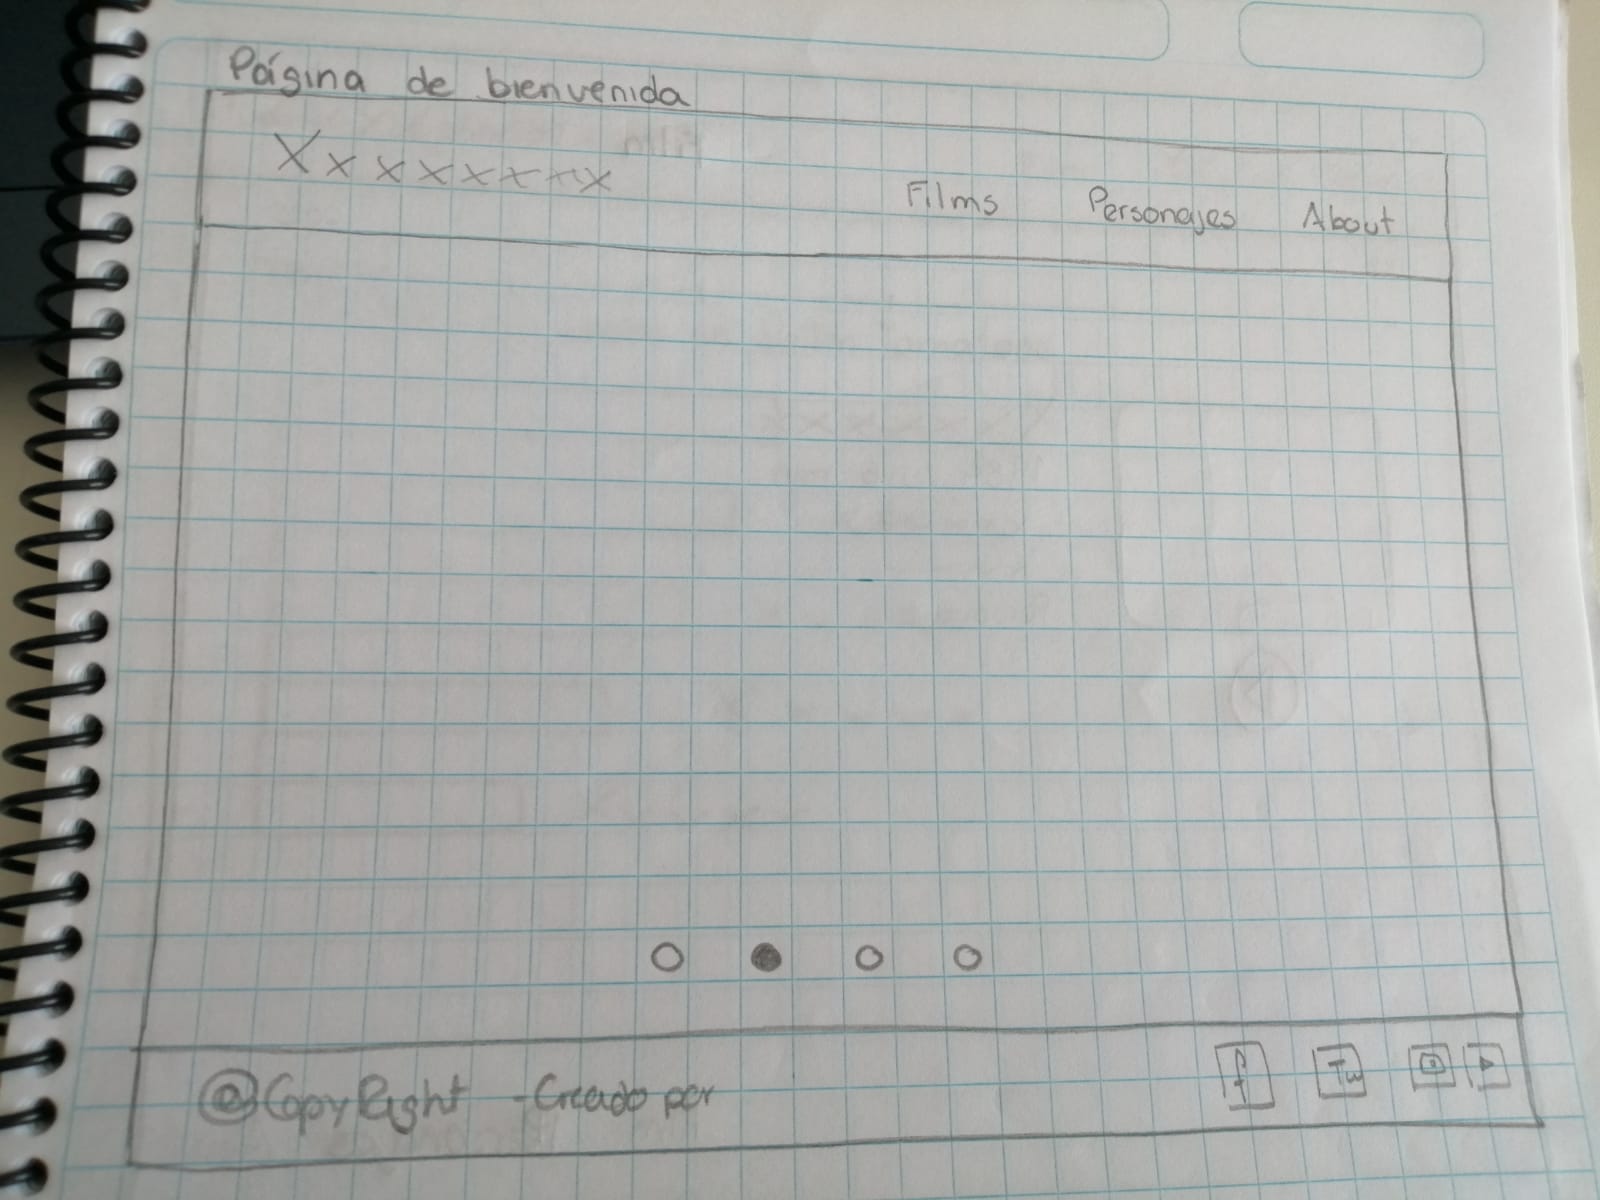 Página de bienvenida
Xxxxxxxx
Films Personajes About
@CopyRight - Creado por f Tw